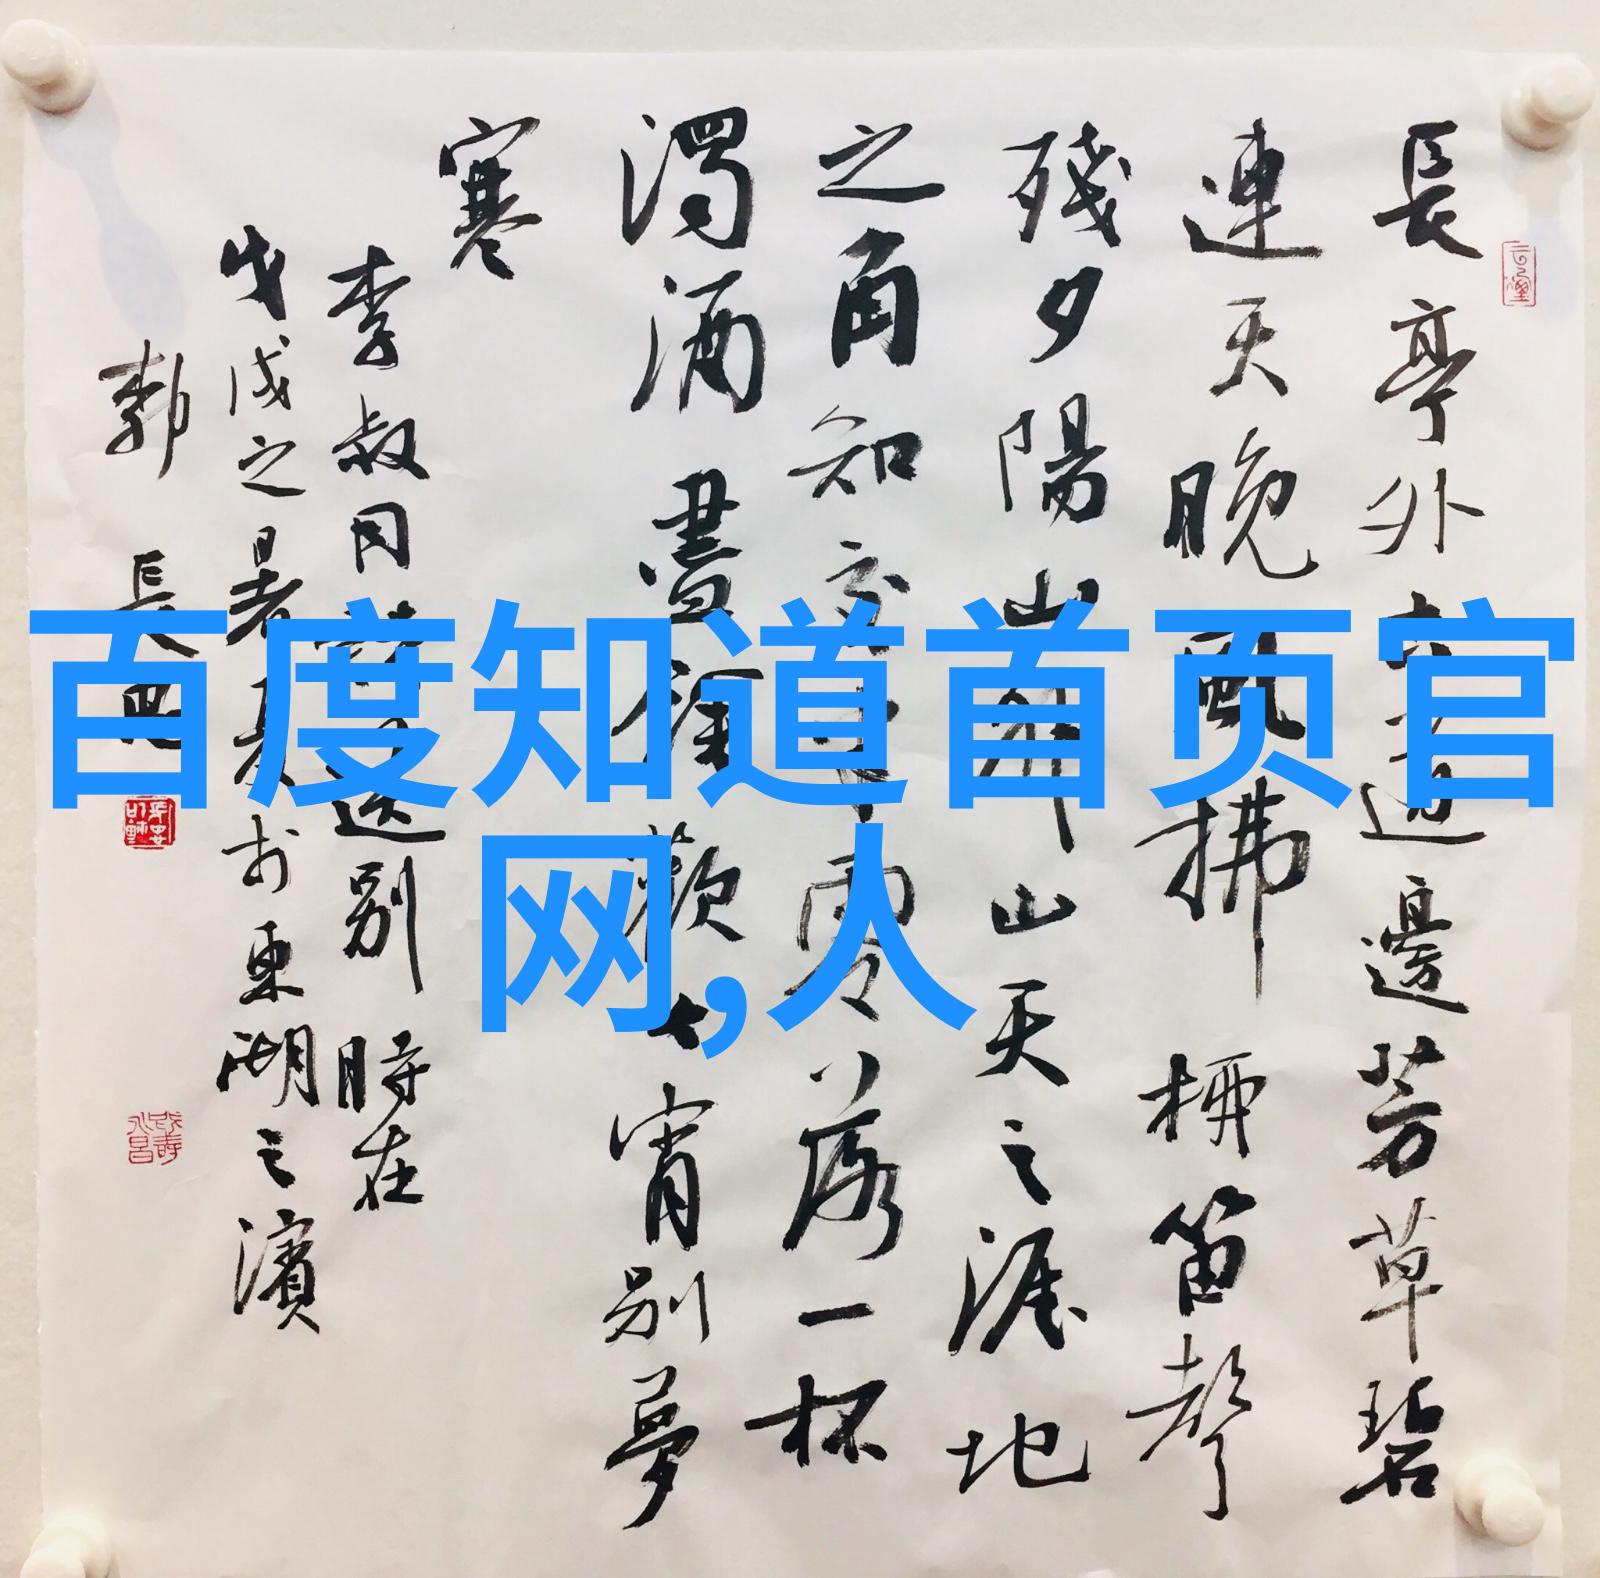 長亭外古道邊芳草碧
連天晚風拂柳笛聲
殘夕陽山外山天之涯地
之角知交半零落一杯
濁酒盡餘歡今宵別夢
寒
李叔同詩送別 時在
戊戌之暑夏於東湖之濱
郭 長
百度知道首页官
网,人